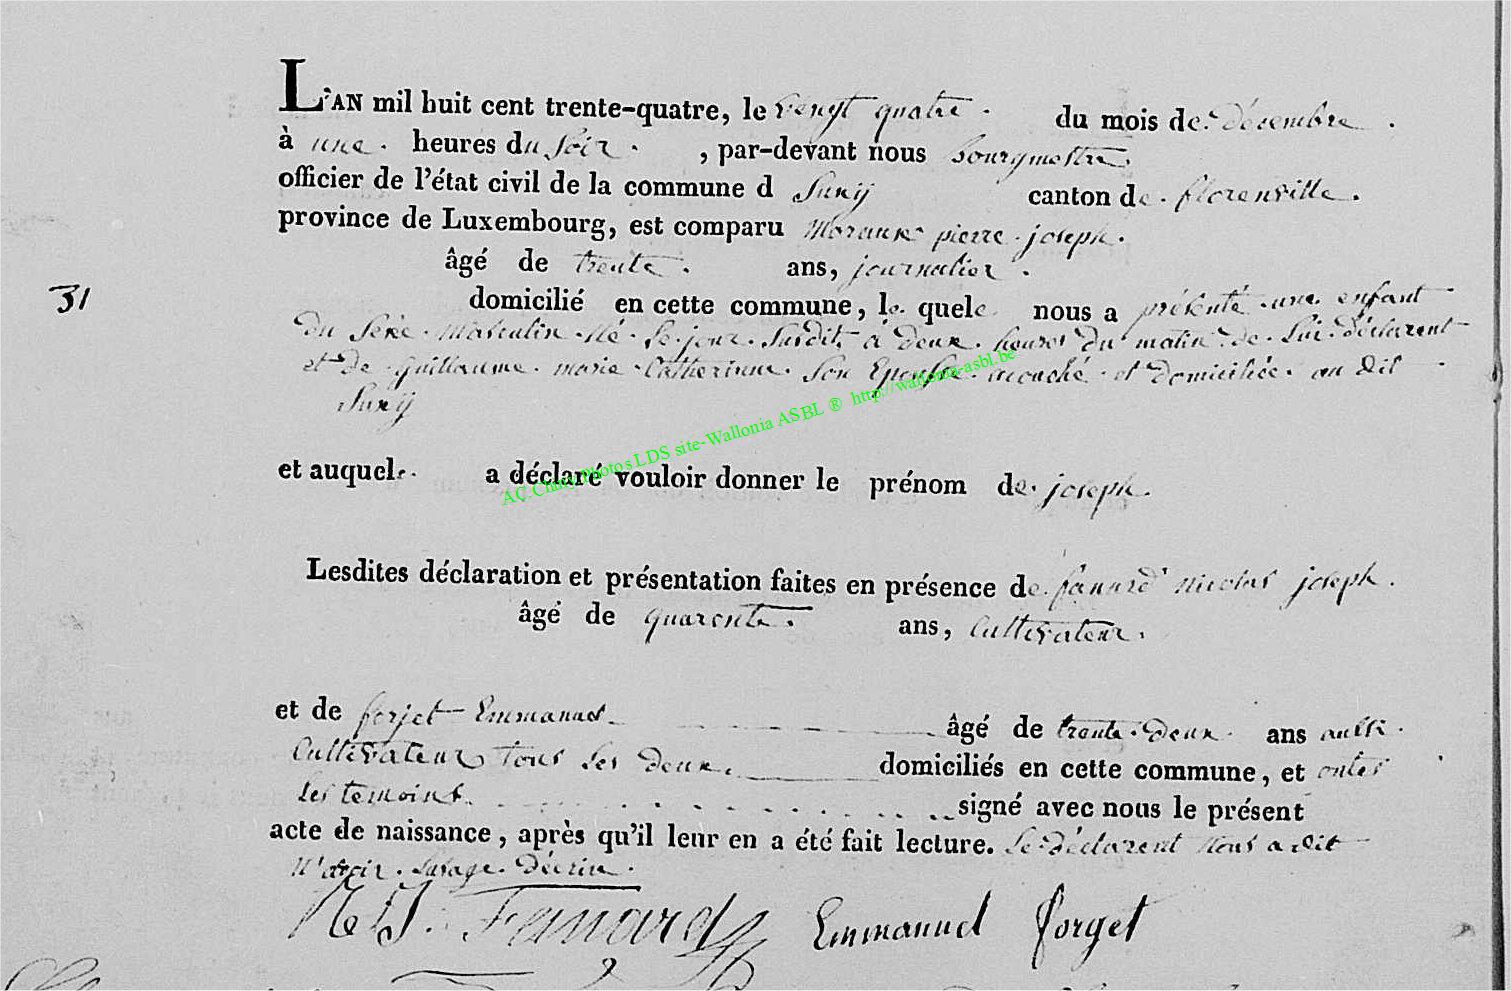 L'AN mil huit cent trente-quatre, le vengt quatre. du mois de. décembre.
à une. heures du Soir. , par-devant nous bourgmestre.
officier de l'état civil de la commune d Suxÿ canton de. florenville.
province de Luxembourg, est comparu pierre. joseph.
âgé de trente. ans, journalier.
31
domicilié en cette commune, le. quele nous a présenté. une. enfant
du Sexe. masculin. Né. Le. jour. Susdit, à deux. heures du matin. de. Lui. déclarent
et de. guillaume. marie. Catherinne. Son Epouse. acouché. et domiciliée. au dit
Suxÿ
et auquele. a déclaré vouloir donner le prénom de. joseph.
AC Chiny Photos LDS site-Wallonia ASBL ® http://wallonia-asbl.be
Lesdites déclaration et présentation faites en présence de. fanard nicolas joseph.
âgé de quarente. ans, Cultivateur.
et de forjet Emmanuel âgé de trente. deux. ans aussi.
Cultivateur tous Les deux. domiciliés en cette commune, et ontes
Les temoins. signé avec nous le présent
acte de naissance, après qu'il leur en a été fait lecture. Le. déclarent nous a dit
N'avoir. Lusage. décrire.
N J. Fanard Emmanuel forget